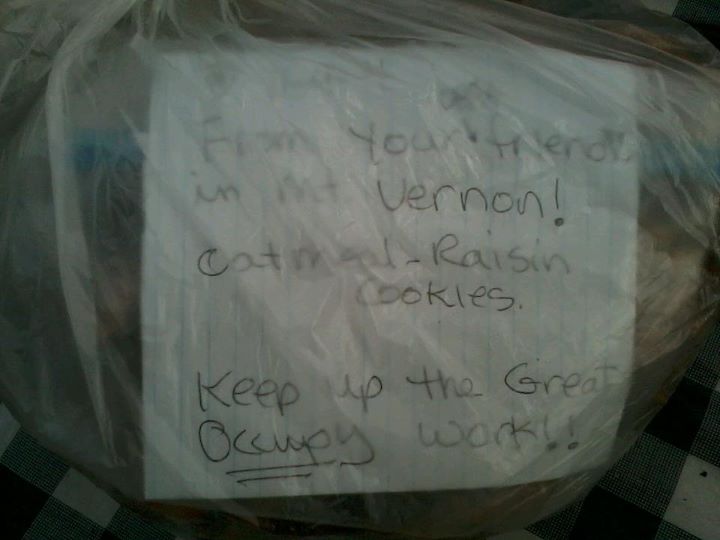 From your friends
in Mt Vernon!
Oatmeal-Raisin
cookies.
Keep up the Great
Occupy work!!